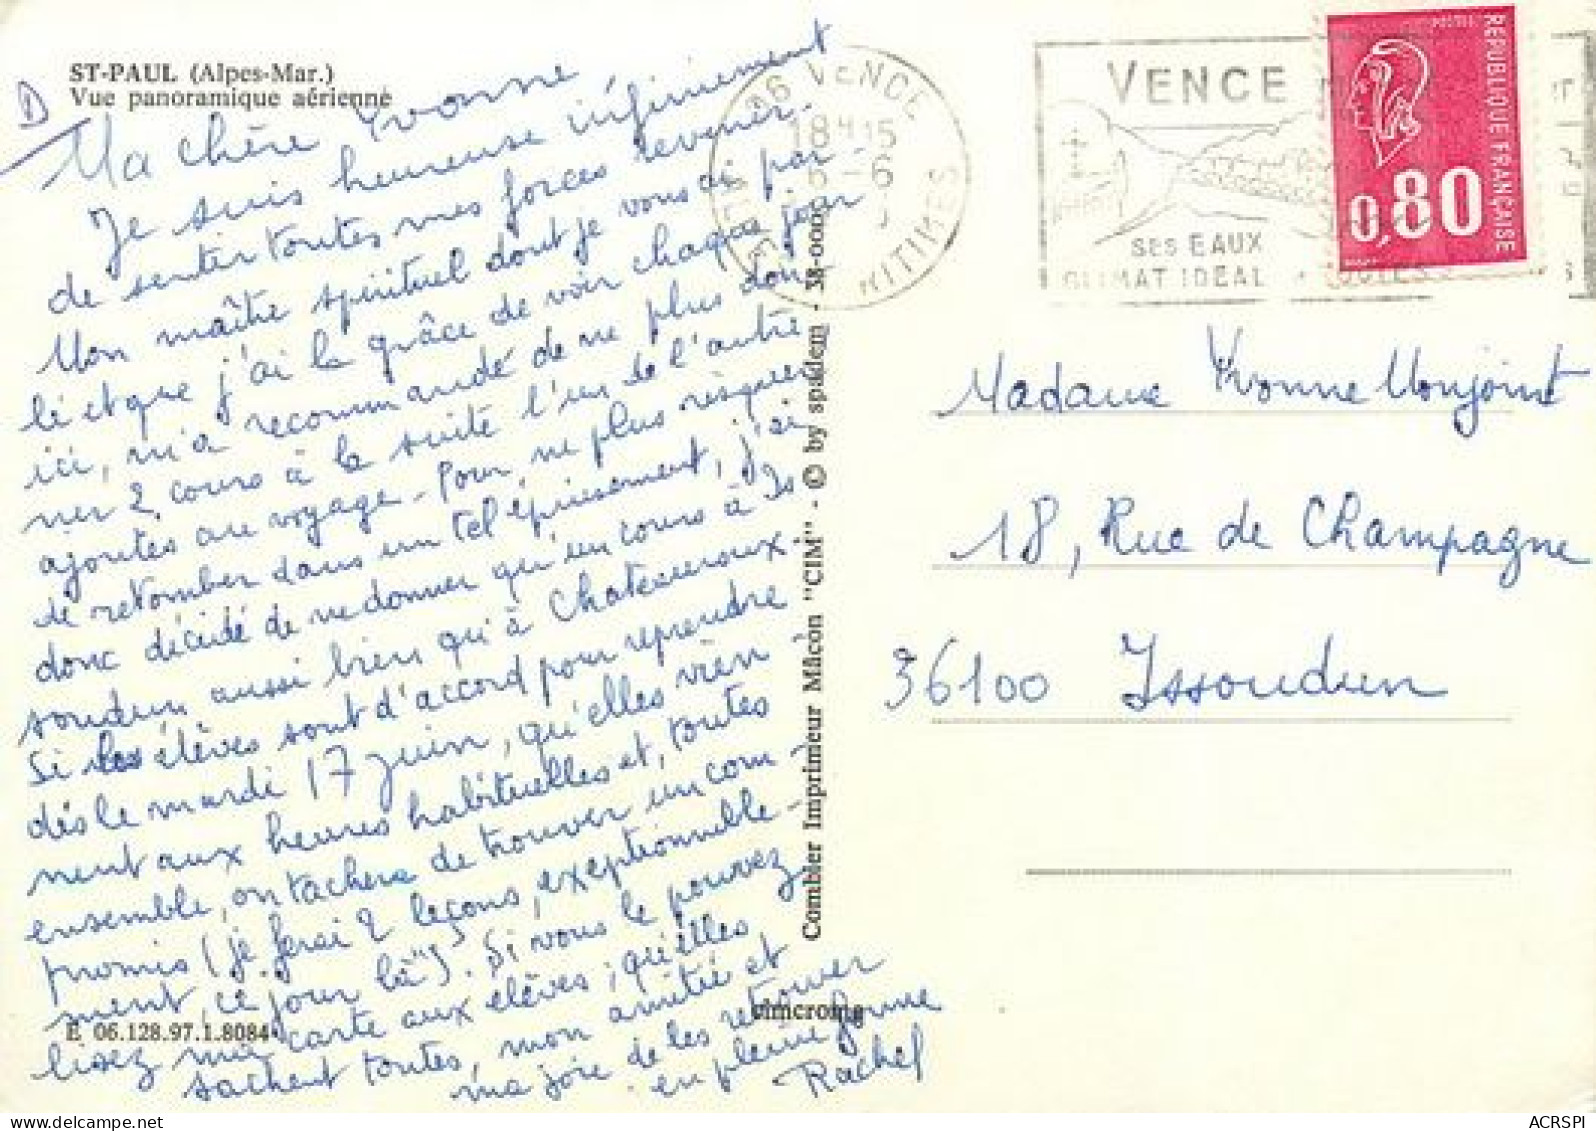 ST-PAUL (Alpes-Mar.)
Vue panoramique aérienne
D
Ma chère Yvonne
Je suis heureuse infiniment
de sentir toutes mes forces revenir.
Mon maître spirituel dont je vous ai par-
lé et que j'ai la grâce de voir chaque jour
ici, m'a recommandé de ne plus don-
ner 2 cours à la suite l'un de l'autre
ajoutés au voyage - Pour ne plus risquer
de retomber dans un tel épuisement, j'ai
donc décidé de ne donner qu'un cours à Is
soudun aussi bien qu'à Chateauroux.
Si les élèves sont d'accord pour reprendre
dès le mardi 17 juin, qu'elles vien
nent aux heures habituelles et, toutes
ensemble, on tachera de trouver un com -
promis (je ferai 2 leçons, exceptionnelle-
ment, ce jour là"). Si vous le pouvez
lisez ma carte aux élèves ; qu'elles
sachent toutes, mon amitié et
ma joie de les retrouver
en pleine forme
Rachel
E 06.128.97.1.8084
cimcrome
Combier Imprimeur Mâcon "CIM" - © by spadem - 38-000
06 VENCE
18H15
5-6
MARITIMES
VENCE
SES EAUX
CLIMAT IDEAL
REPUBLIQUE FRANÇAISE
POSTES
0,80
Madame Yvonne Monjoint
18, Rue de Champagne
36100 Issoudun
ACRSPI